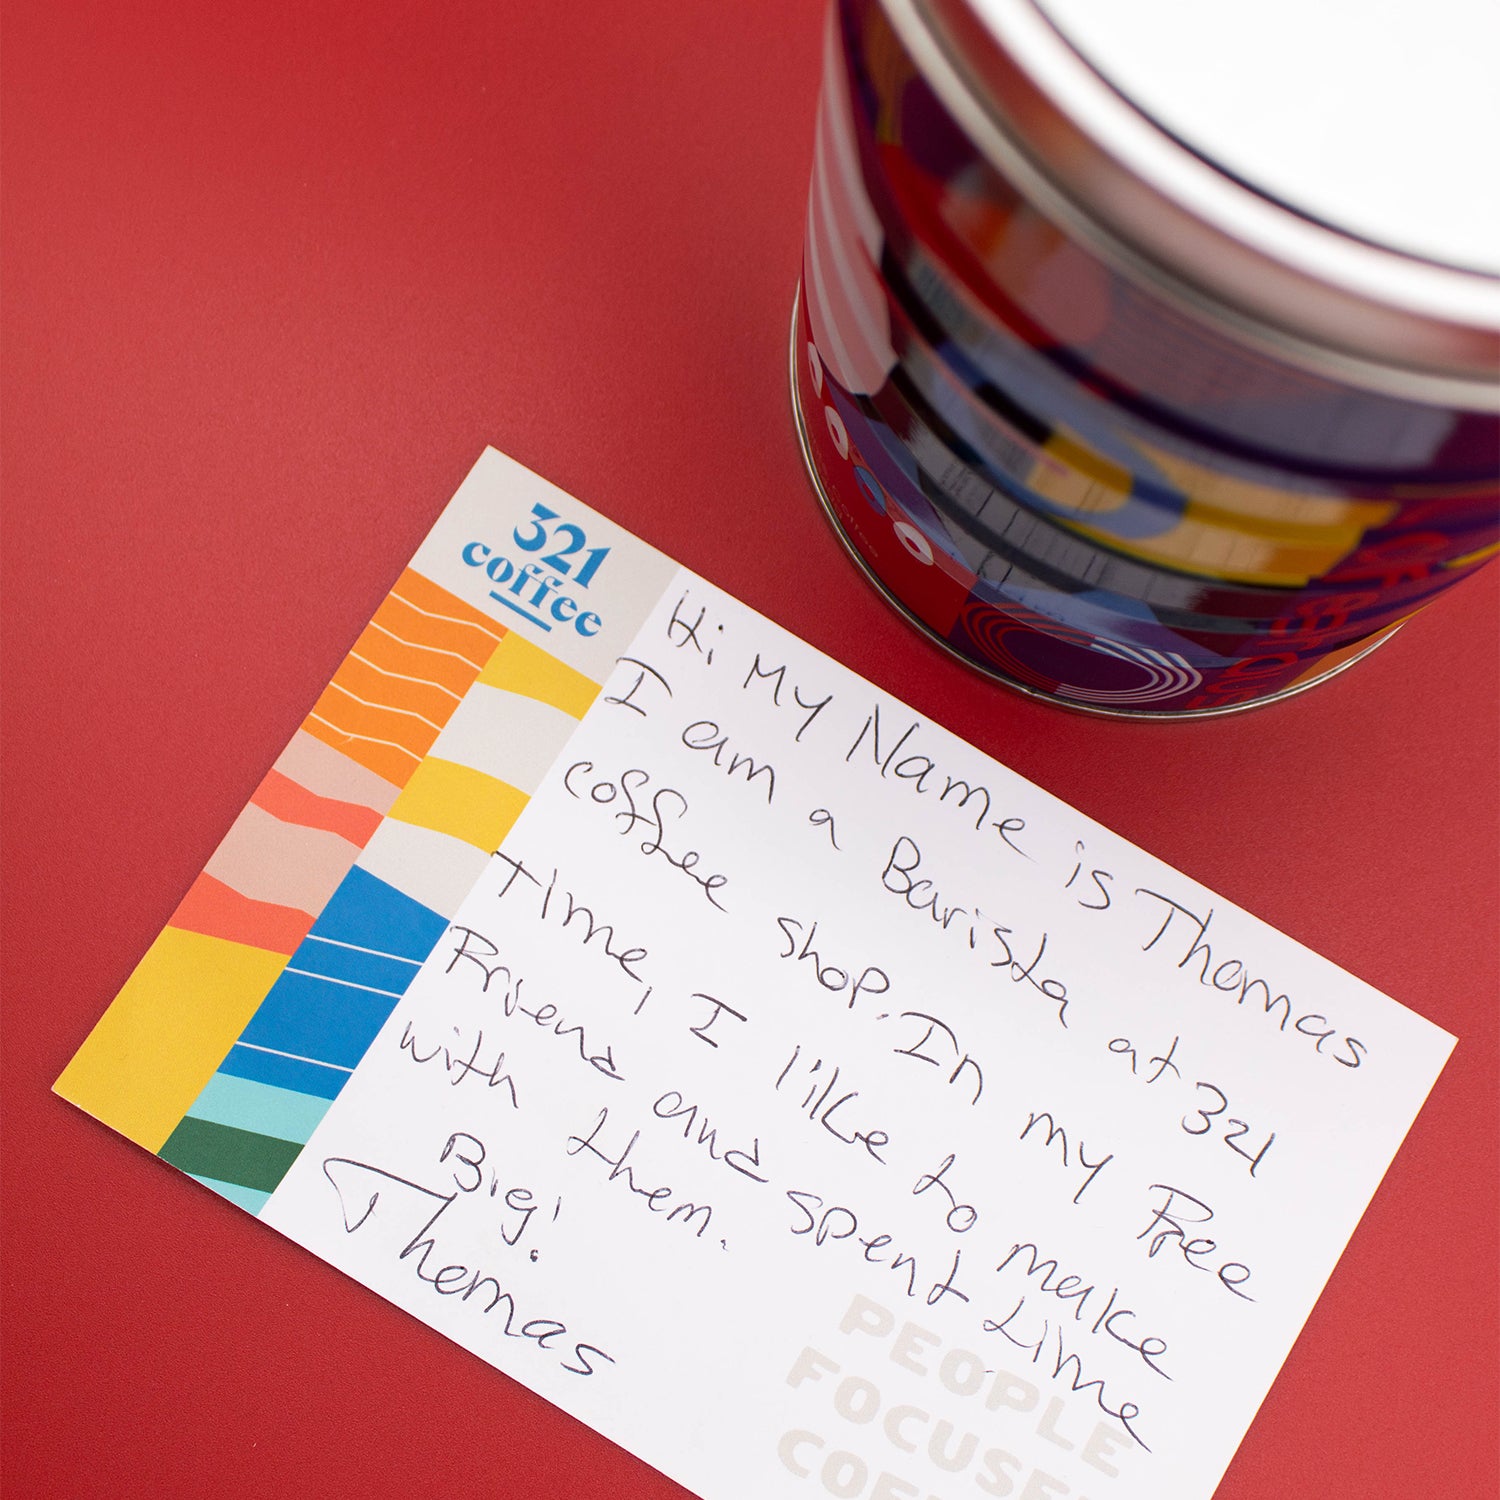 321
coffee
Hi My Name is Thomas
I am a Barista at 321
coffee shop. In my Free
Time, I like to make
Friend and spent time
with them.
Big!
Thomas
PEOPLE
FOCUSE
CO